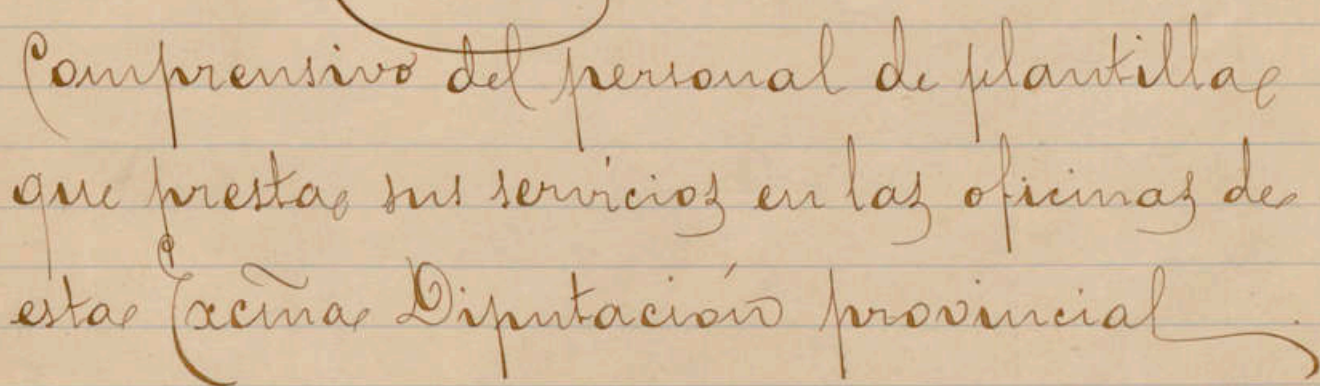 Comprensivo del personal de plantilla
que presta sus servicios en las oficinas de
esta Excma Diputación provincial